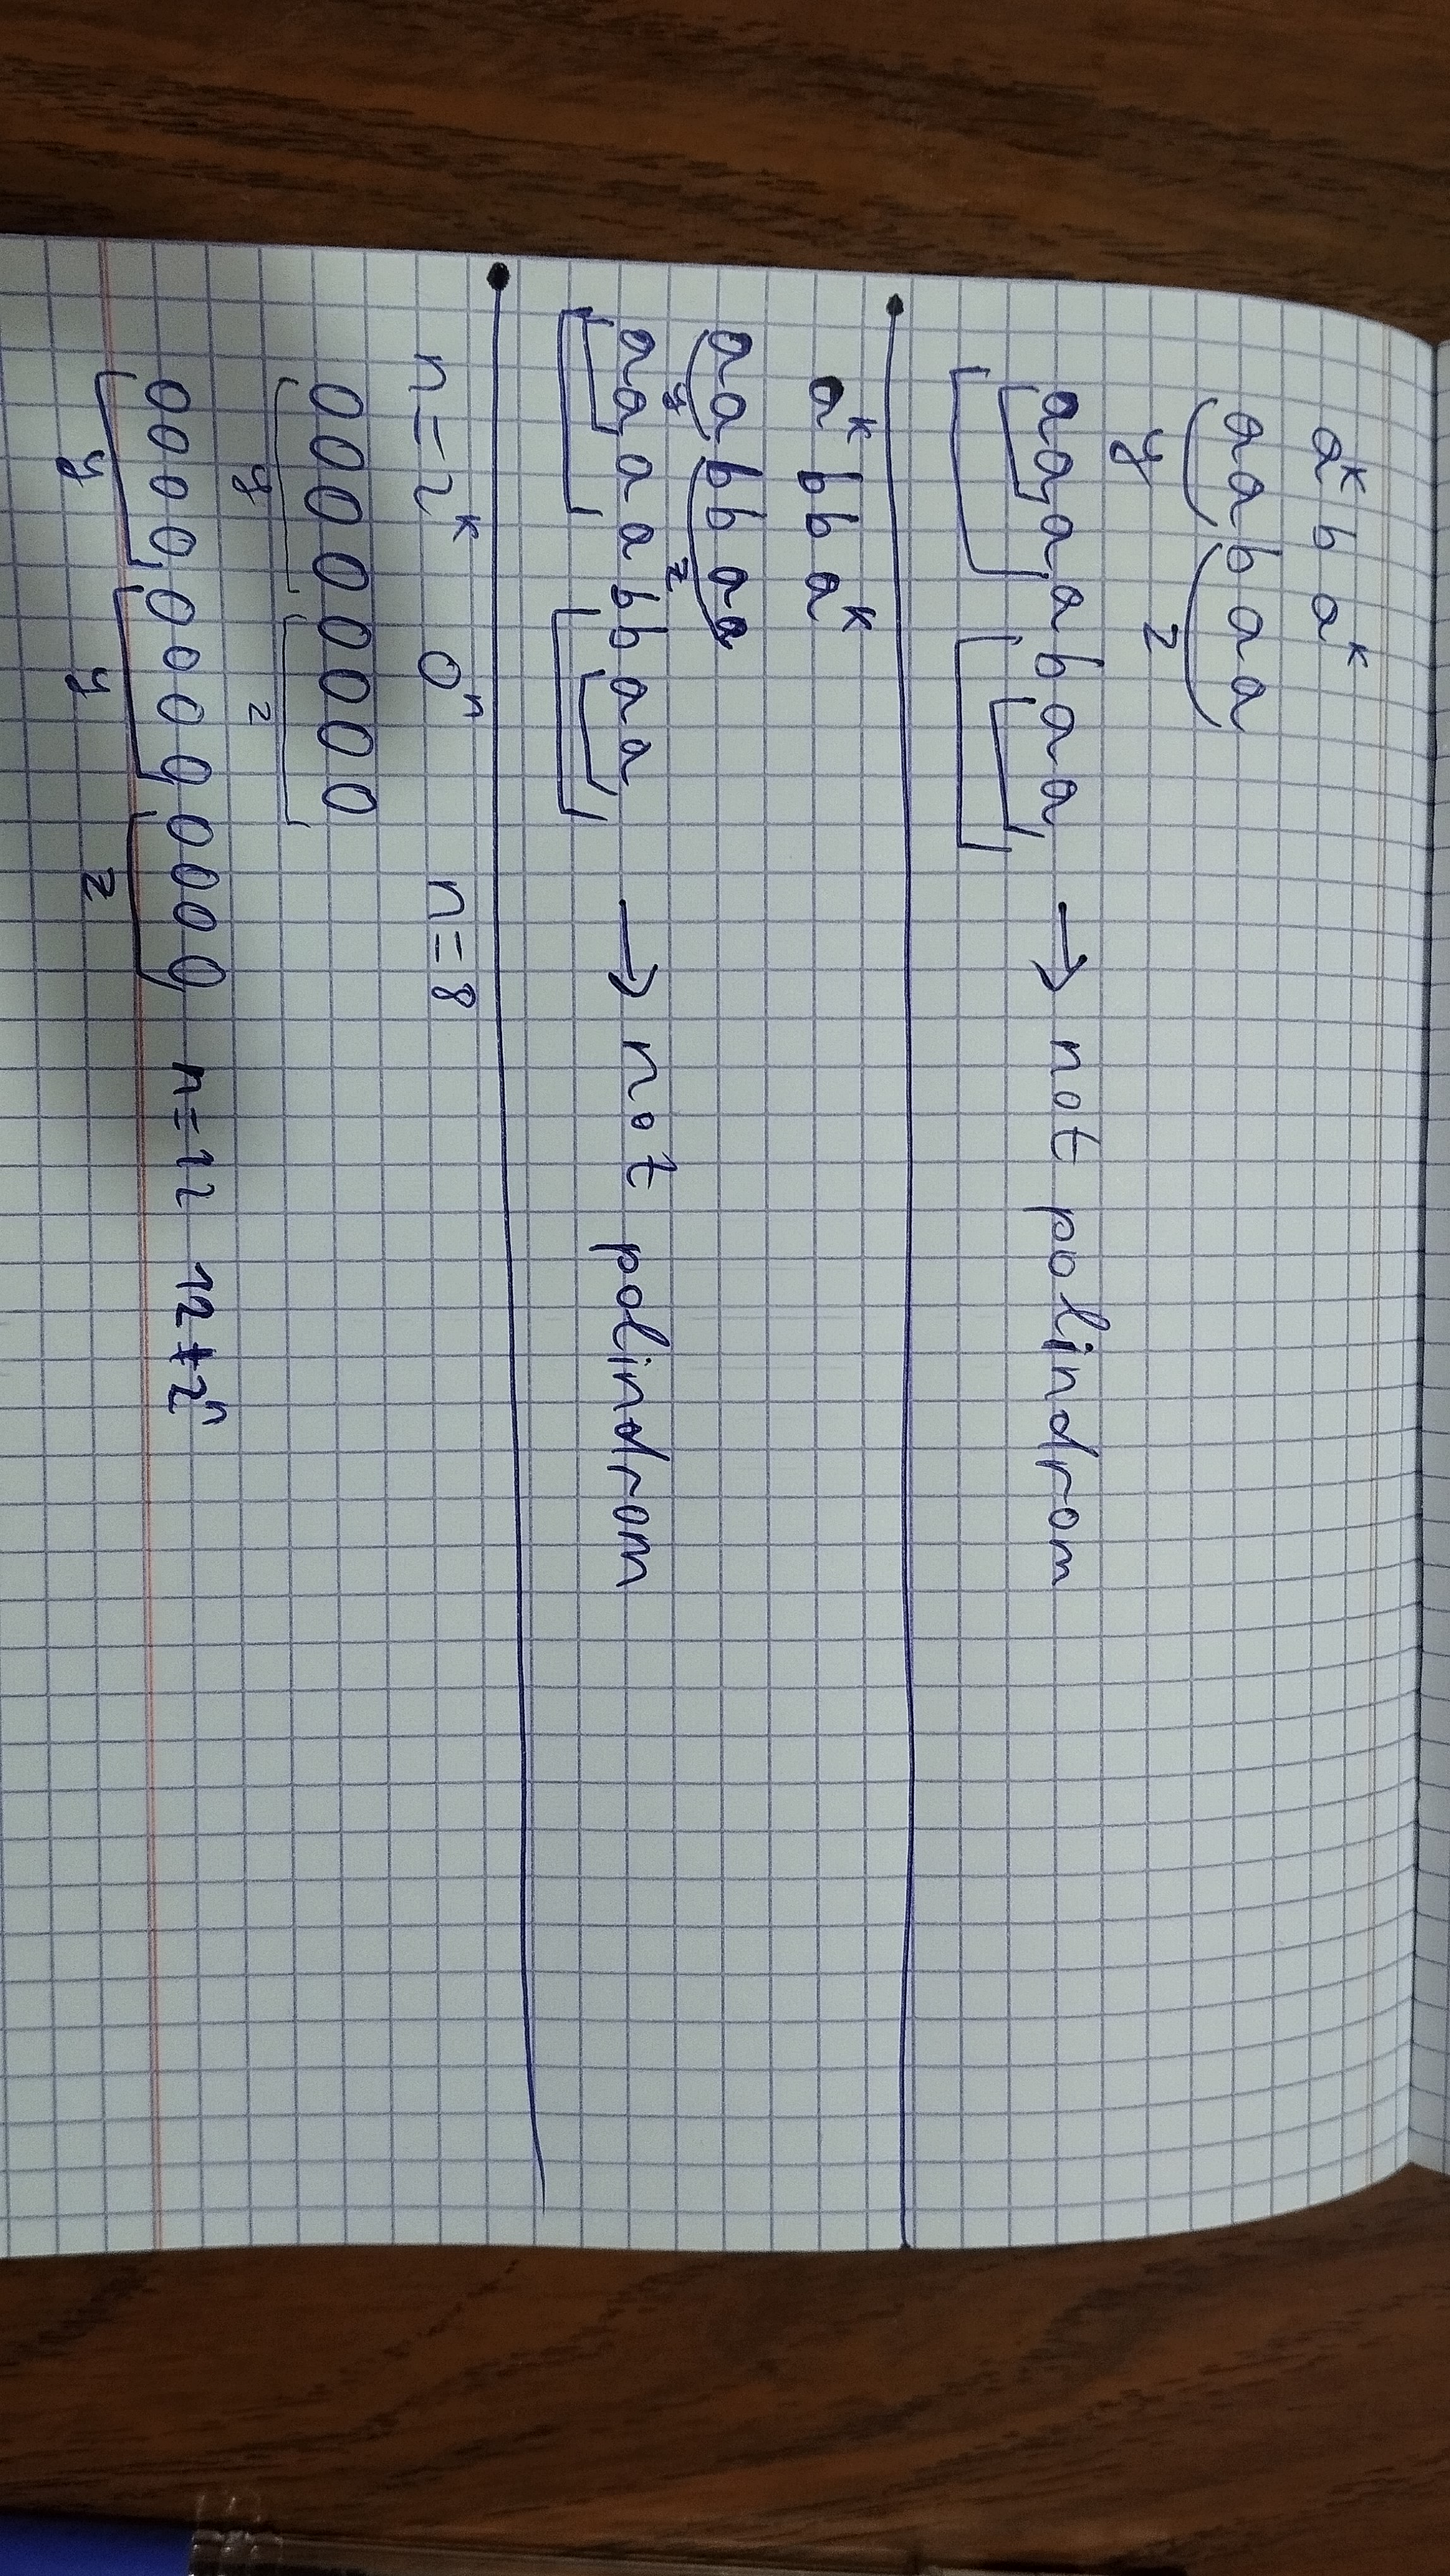 aᵏ b aᵏ
aabaa
y z
aaaabaa → not polindrom
aᵏ bb aᵏ
aabbaa
y z
aaaabbaa → not polindrom
n=2ᵏ 0ⁿ n=8
00000000
y z
000000000000 n=12 12≠2ⁿ
y y z